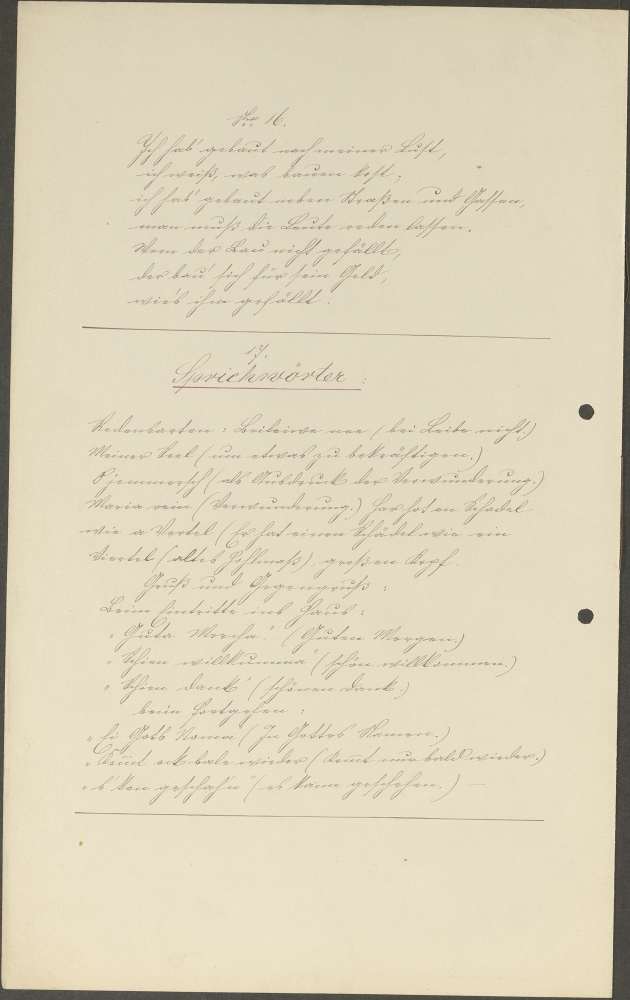 No 16.
Ich hab' gebaut nach meiner Lust,
ich weiß, was bauen kost;
ich hab' gebaut neben Straßen und Gassen,
man muß die Leute reden lassen.
Wem der Bau nicht gefällt,
der bau' sich für sein Geld,
wie's ihm gefällt.
17.
Sprichwörter:
Redensarten: Beileiwe nee (bei Leibe nicht.)
Meiner Seel (um etwas zu bekräftigen.)
O jemmersch (als Ausdruck der Verwunderung.)
Maria rein (Verwunderung.) Har hot en Schadel
wie a Vertel (Er hat einen Schädel wie ein
Viertel (altes Hohlmaß) großen Kopf.
Gruß und Gegengruß:
Beim Eintritte ins Haus:
"Guta Morcha!" (Guten Morgen.)
"Schien willkumma" (schön willkommen.)
"Schien Dank" (schönen Dank.)
beim Fortgehen:
"Ei Gots Noma (In Gottes Namen.)
"Kummt ock bale wieder (Kommt nur bald wieder.)
"'s kon geschahn" (es kann geschehen.) —